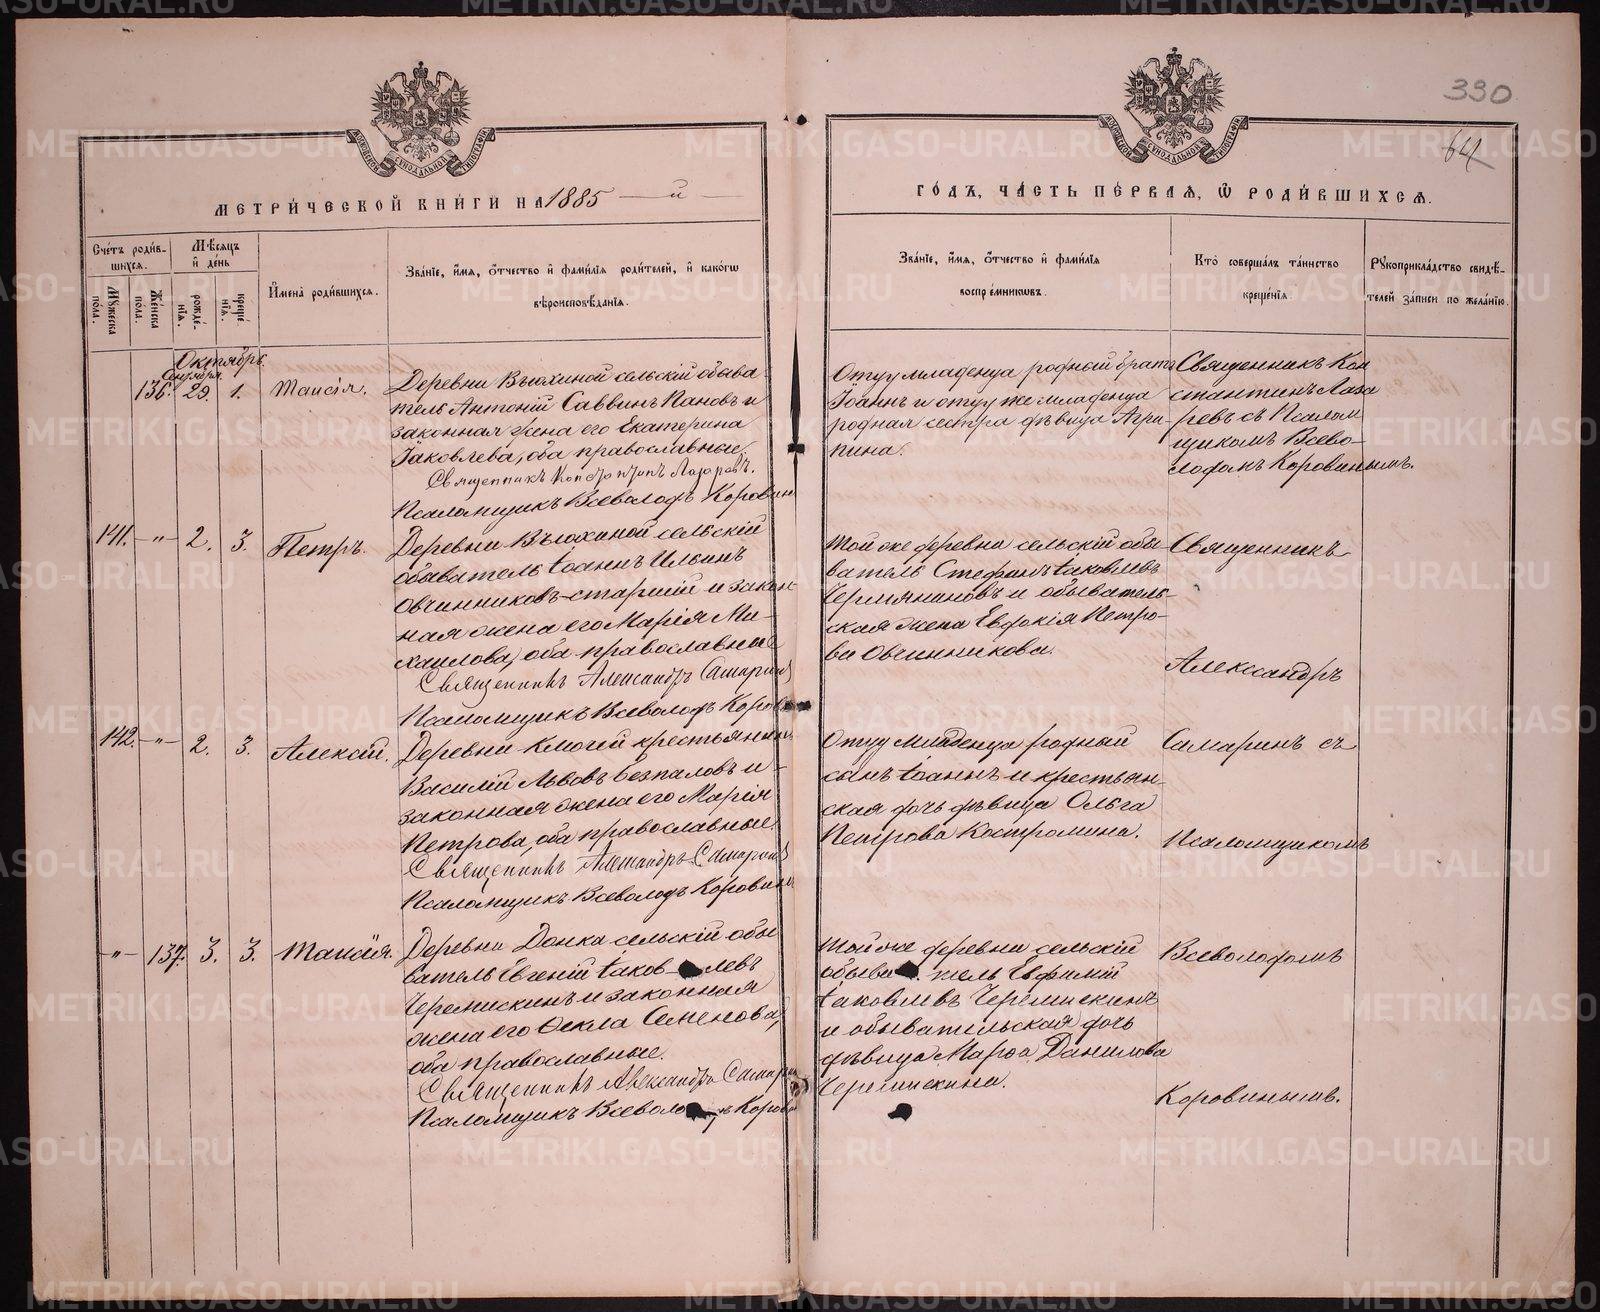 330
64
МЕТРИ́ЧЕСКОЙ КНИ́ГИ НА 1885 — й —
ГО́ДЪ, ЧА́СТЬ ПЕ́РВАЯ, Ѡ РОДИ́ВШИХСЯ.
Сче́тъ роди́в-
шихся.
Мꙋ́жеска
по́ла.
Же́нска
по́ла.
Мѣ́сяцъ
и҆ де́нь
рожде́-
нїя.
креще́
нїя.
И҆мена̀ роди́вшихся.
Зва́нїе, и҆́мя, ѻ҆́тчество и҆ фами́лїя роди́телей, и҆ како́гѡ
вѣроисповѣ́данїя.
Зва́нїе, и҆́мя, ѻ҆́тчество и҆ фами́лїя
воспрїе́мникѡвъ.
Кто̀ соверша́лъ та́инство
креще́нїя.
Рꙋкоприкла́дство свидѣ́-
телей за́писи по жела́нїю.
Октябрь.
Сентября.
136. 29. 1. Таисія.
Деревни Вьюхиной сельскій обыва-
тель Антоній Саввинъ Пановъ и
законная жена его Екатерина
Іаковлева, оба православные.
Священникъ Константинъ Лазаревъ.
Псаломщикъ Всеволодъ Коровин
Отцу младенца родной братъ
Іоаннъ и отцу же младенца
родная сестра дѣвица Агри-
пина.
Священникъ Кон
стантинъ Лаза
ревъ съ Псалом
щикомъ Всево-
лодомъ Коровинымъ.
141. -"- 2. 3. Петръ.
Деревни Вьюхиной сельскій
обыватель Іоаннъ Ильинъ
Овчинниковъ-старшій и закон-
ная жена его Марія Ми-
хаилова, оба православные
Священникъ Александръ Самарин
Псаломщикъ Всеволодъ Корови
Той же деревни сельскій обы-
ватель Стефанъ Іаковлевъ
Чермяниновъ и обыватель-
ская жена Евдокія Петро-
ва Овчинникова.
Священникъ
Александръ
142. -"- 2. 3. Алексій.
Деревни Ключей крестьянин
Василій Львовъ Безпаловъ и
законная жена его Марія
Петрова, оба православные.
Священникъ Александръ Самарин
Псаломщикъ Всеволодъ Коровин
Отцу младенца родный
сынъ Іоаннъ и крестьян-
ская дочь дѣвица Ольга
Петрова Костромина.
Самаринъ съ
Псаломщикомъ
-"- 137. 3. 3. Таисія.
Деревни Донка сельскій обы
ватель Евгеній Іаковлевъ
Черемискинъ и законная
жена его Ѳекла Семенова,
оба православные.
Священникъ Александръ Самарин
Псаломщикъ Всеволодъ Корови
Той же деревни сельскій
обыватель Евфимій
Іаковлевъ Черемискинъ
и обывательская дочь
дѣвица Марѳа Данилова
Черемискина.
Всеволодомъ
Коровинымъ.